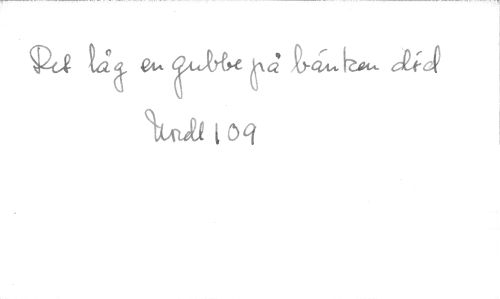 Det låg en gubbe på bänken död
Nordl 109